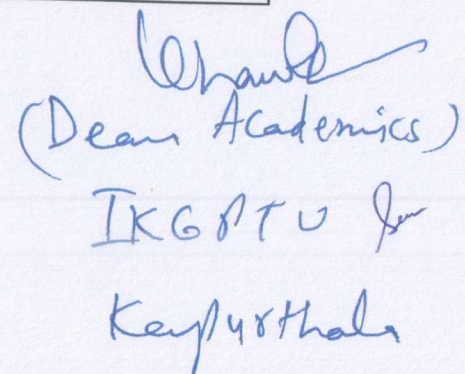 (Dean Academics)
IKGPTU
Kapurthala